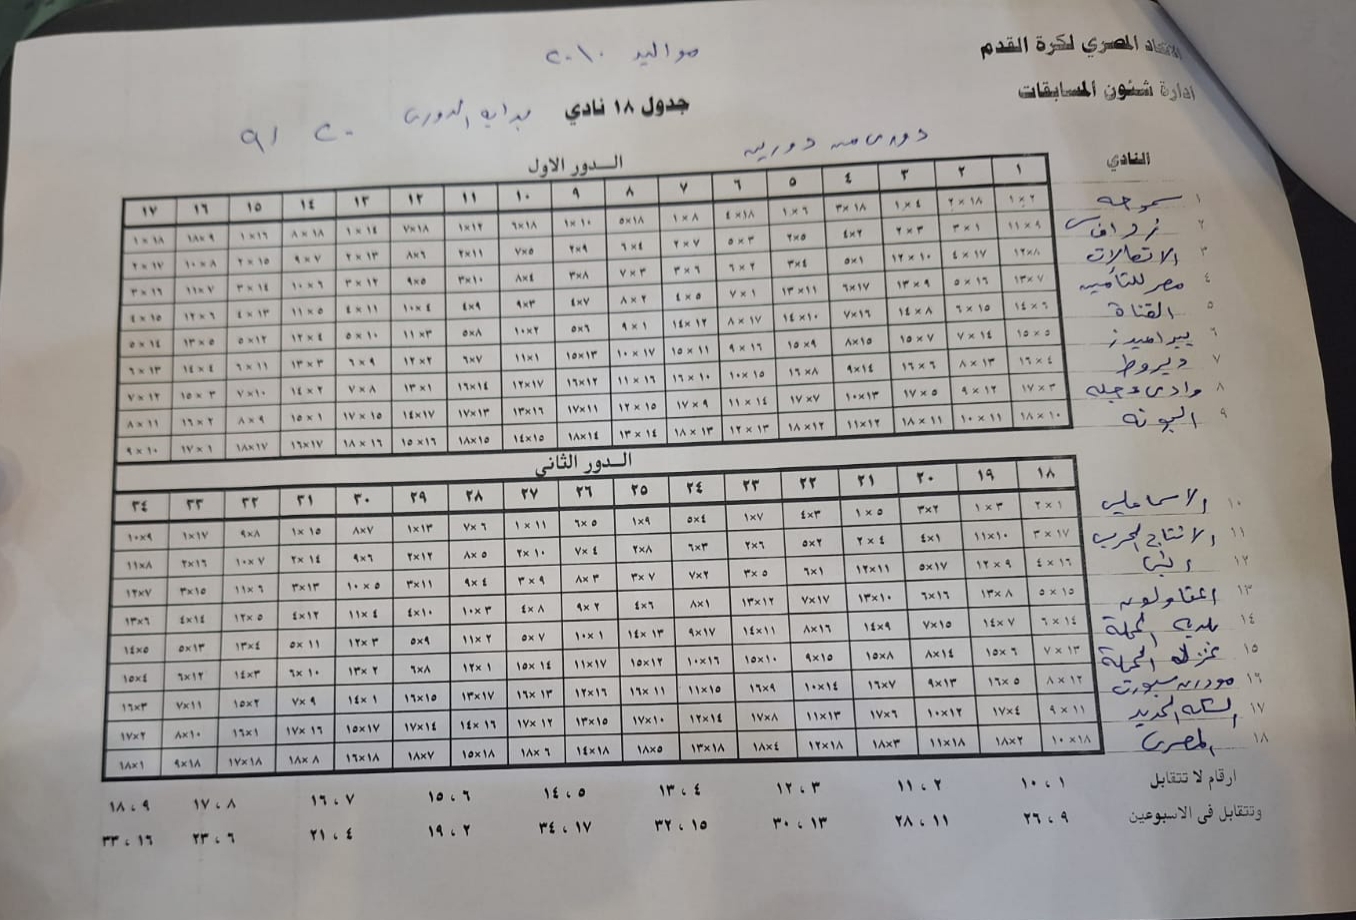 الاتحاد المصري لكرة القدم
ادارة شئون المسابقات
مواليد ٢٠١٠
جدول ١٨ نادي بداية الدورى ٢٠ / ٩
دورى من دورين
النادي الـدور الاول
١ ٢ ٣ ٤ ٥ ٦ ٧ ٨ ٩ ١٠ ١١ ١٢ ١٣ ١٤ ١٥ ١٦ ١٧
١ سموحه ١×٢ ٢×١٨ ١×٤ ٣×١٨ ١×٦ ٤×١٨ ١×٨ ٥×١٨ ١×١٠ ٦×١٨ ١×١٢ ٧×١٨ ١×١٤ ٨×١٨ ١×١٦ ١٨×٩ ١×١٨
٢ ١١×٩ ١×٣ ٣×٢ ٤×٢ ٢×٥ ٥×٣ ٧×٢ ٦×٤ ٢×٩ ٧×٥ ٢×١١ ٨×٦ ٢×١٣ ٩×٧ ٢×١٥ ١٠×٨ ٢×١٧
٣ الاتصالات ١٢×٨ ٤×١٧ ١٢×١٠ ٥×١ ٤×٣ ٢×٦ ٦×٣ ٧×٣ ٣×٨ ٨×٤ ٣×١٠ ٩×٥ ٣×١٢ ١٠×٦ ٣×١٤ ١١×٧ ٣×١٦
٤ مصر للتأمين ١٣×٧ ٥×١٦ ١٣×٩ ٦×١٧ ١٣×١١ ٧×١ ٤×٥ ٨×٢ ٤×٧ ٩×٣ ٤×٩ ١٠×٤ ٤×١١ ١١×٥ ٤×١٣ ١٢×٦ ٤×١٥
٥ القناة ١٤×٦ ٦×١٥ ١٤×٨ ٧×١٦ ١٤×١٠ ٨×١٧ ١٤×١٢ ٩×١ ٥×٦ ١٠×٢ ٥×٨ ١١×٣ ٥×١٠ ١٢×٤ ٥×١٢ ١٣×٥ ٥×١٤
٦ بيراميدز ١٥×٥ ٧×١٤ ١٥×٧ ٨×١٥ ١٥×٩ ٩×١٦ ١٥×١١ ١٠×١٧ ١٥×١٣ ١١×١ ٦×٧ ١٢×٢ ٦×٩ ١٣×٣ ٦×١١ ١٤×٤ ٦×١٣
٧ ديروط ١٦×٤ ٨×١٣ ١٦×٦ ٩×١٤ ١٦×٨ ١٠×١٥ ١٦×١٠ ١١×١٦ ١٦×١٢ ١٢×١٧ ١٦×١٤ ١٣×١ ٧×٨ ١٤×٢ ٧×١٠ ١٥×٣ ٧×١٢
٨ وادى دجله ١٧×٣ ٩×١٢ ١٧×٥ ١٠×١٣ ١٧×٧ ١١×١٤ ١٧×٩ ١٢×١٥ ١٧×١١ ١٣×١٦ ١٧×١٣ ١٤×١٧ ١٧×١٥ ١٥×١ ٨×٩ ١٦×٢ ٨×١١
٩ ١٨×١٠ ١٠×١١ ١٨×١١ ١١×١٢ ١٨×١٢ ١٢×١٣ ١٨×١٣ ١٣×١٤ ١٨×١٤ ١٤×١٥ ١٨×١٥ ١٥×١٦ ١٨×١٦ ١٦×١٧ ١٨×١٧ ١٧×١ ٩×١٠
الـدور الثاني
١٨ ١٩ ٢٠ ٢١ ٢٢ ٢٣ ٢٤ ٢٥ ٢٦ ٢٧ ٢٨ ٢٩ ٣٠ ٣١ ٣٢ ٣٣ ٣٤
١٠ الاسماعيلى ٢×١ ١×٣ ٣×٢ ١×٥ ٤×٣ ١×٧ ٥×٤ ١×٩ ٦×٥ ١×١١ ٧×٦ ١×١٣ ٨×٧ ١×١٥ ٩×٨ ١×١٧ ١٠×٩
١١ الانتاج الحربى ٣×١٧ ١١×١٠ ٤×١ ٢×٤ ٥×٢ ٢×٦ ٦×٣ ٢×٨ ٧×٤ ٢×١٠ ٨×٥ ٢×١٢ ٩×٦ ٢×١٤ ١٠×٧ ٢×١٦ ١١×٨
١٢ ٤×١٦ ١٢×٩ ٥×١٧ ١٢×١١ ٦×١ ٣×٥ ٧×٢ ٣×٧ ٨×٣ ٣×٩ ٩×٤ ٣×١١ ١٠×٥ ٣×١٣ ١١×٦ ٣×١٥ ١٢×٧
١٣ المقاولون ٥×١٥ ١٣×٨ ٦×١٦ ١٣×١٠ ٧×١٧ ١٣×١٢ ٨×١ ٤×٦ ٩×٢ ٤×٨ ١٠×٣ ٤×١٠ ١١×٤ ٤×١٢ ١٢×٥ ٤×١٤ ١٣×٦
١٤ بلدية المحلة ٦×١٤ ١٤×٧ ٧×١٥ ١٤×٩ ٨×١٦ ١٤×١١ ٩×١٧ ١٤×١٣ ١٠×١ ٥×٧ ١١×٢ ٥×٩ ١٢×٣ ٥×١١ ١٣×٤ ٥×١٣ ١٤×٥
١٥ غزل المحلة ٧×١٣ ١٥×٦ ٨×١٤ ١٥×٨ ٩×١٥ ١٥×١٠ ١٠×١٦ ١٥×١٢ ١١×١٧ ١٥×١٤ ١٢×١ ٦×٨ ١٣×٢ ٦×١٠ ١٤×٣ ٦×١٢ ١٥×٤
١٦ مودرن سبورت ٨×١٢ ١٦×٥ ٩×١٣ ١٦×٧ ١٠×١٤ ١٦×٩ ١١×١٥ ١٦×١١ ١٢×١٦ ١٦×١٣ ١٣×١٧ ١٦×١٥ ١٤×١ ٧×٩ ١٥×٢ ٧×١١ ١٦×٣
١٧ السكه الحديد ٩×١١ ١٧×٤ ١٠×١٢ ١٧×٦ ١١×١٣ ١٧×٨ ١٢×١٤ ١٧×١٠ ١٣×١٥ ١٧×١٢ ١٤×١٦ ١٧×١٤ ١٥×١٧ ١٧×١٦ ١٦×١ ٨×١٠ ١٧×٢
١٨ المصرى ١٠×١٨ ١٨×٢ ١١×١٨ ١٨×٣ ١٢×١٨ ١٨×٤ ١٣×١٨ ١٨×٥ ١٤×١٨ ١٨×٦ ١٥×١٨ ١٨×٧ ١٦×١٨ ١٨×٨ ١٧×١٨ ٩×١٨ ١٨×١
ارقام لا تتقابل ١ ، ١٠ ٢ ، ١١ ٣ ، ١٢ ٤ ، ١٣ ٥ ، ١٤ ٦ ، ١٥ ٧ ، ١٦ ٨ ، ١٧ ٩ ، ١٨
وتتقابل في الاسبوعين ٩ ، ٢٦ ١١ ، ٢٨ ١٣ ، ٣٠ ١٥ ، ٣٢ ١٧ ، ٣٤ ٢ ، ١٩ ٤ ، ٢١ ٦ ، ٢٣ ١٦ ، ٣٣